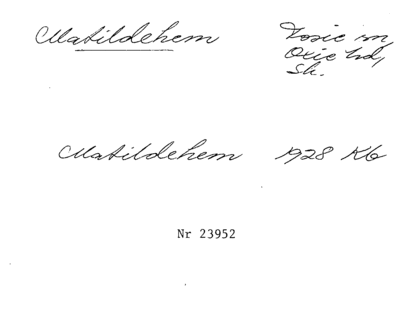 Matildehem Fosie sn,
Oxie hd,
Sk.
Matildehem 1928 Kb
Nr 23952